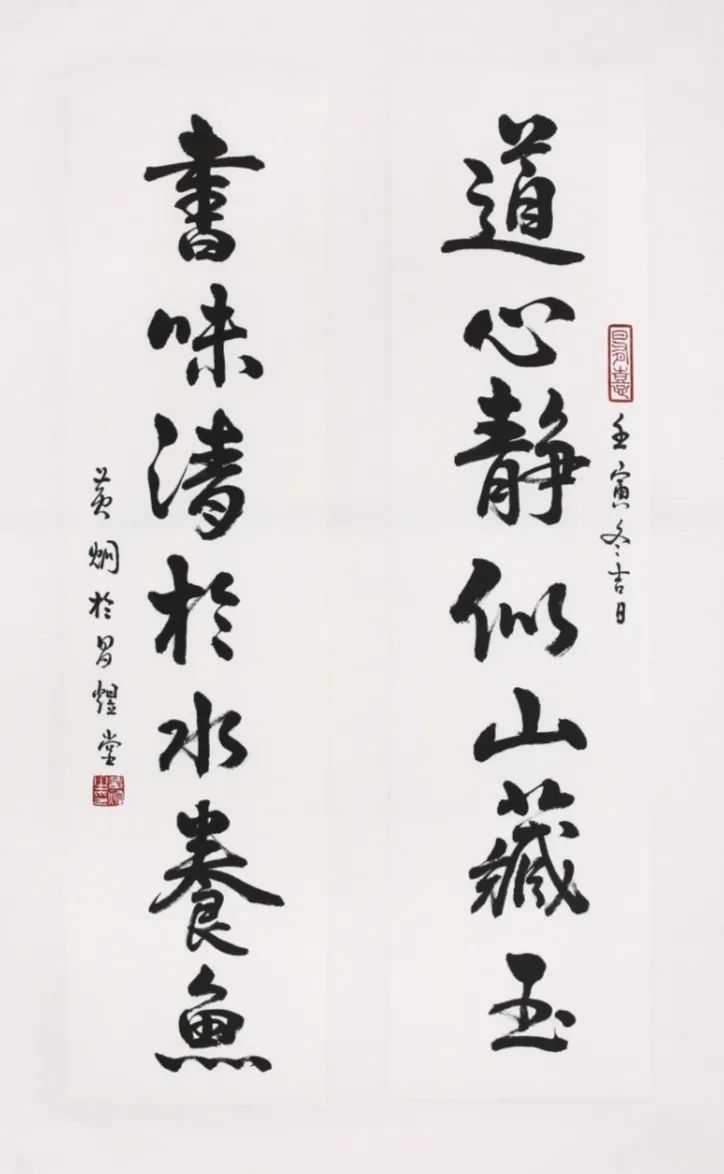 道心靜似山藏玉
壬寅冬吉日
書味清於水養魚
黃炯於昌煜堂